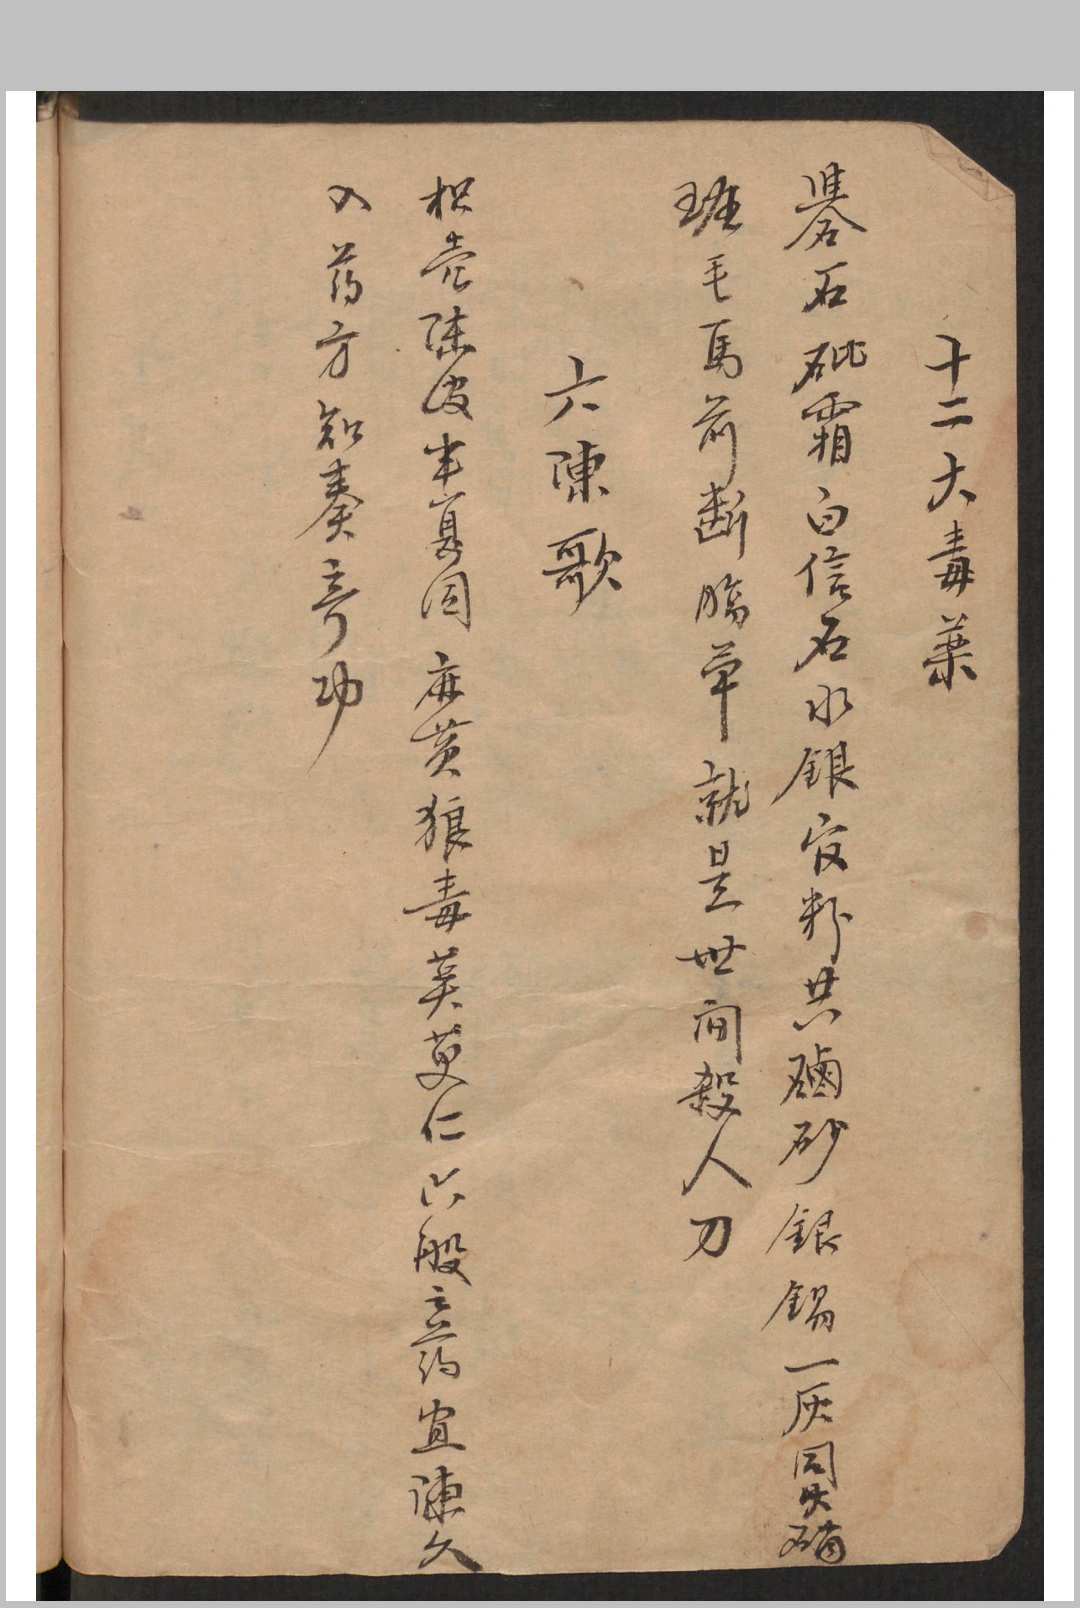 十二大毒藥
礜石砒霜白信石水銀官粉共磠砂銀錫一灰同火硝
班毛馬前斷腸草就是世间殺人刀
六陳歌
枳壳陳皮半夏同麻黄狼毒茱萸仁六般之药宜陳久
入药方知奏奇功